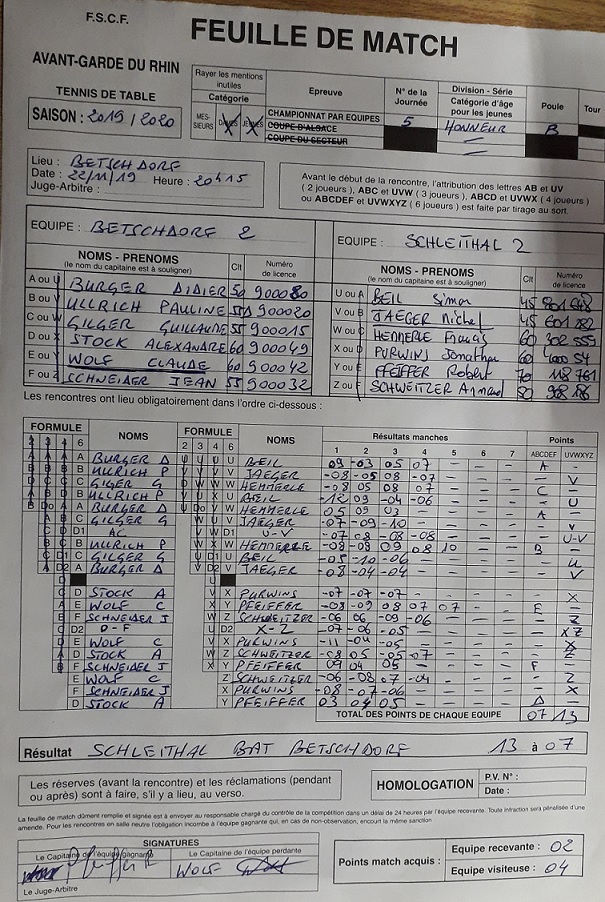 F.S.C.F.
FEUILLE DE MATCH
AVANT-GARDE DU RHIN
TENNIS DE TABLE
SAISON : 2019 / 2020
Rayer les mentions inutiles
Catégorie
MES-SIEURS DAMES JEUNES
Epreuve
CHAMPIONNAT PAR EQUIPES
COUPE D'ALSACE
COUPE DU SECTEUR
N° de la Journée
5
Division - Série
Catégorie d'âge pour les jeunes
HONNEUR
Poule
B
Tour
Lieu : BETSCHDORF
Date : 22/11/19 Heure : 20H15
Juge-Arbitre :
Avant le début de la rencontre, l'attribution des lettres AB et UV
( 2 joueurs), ABC et UVW ( 3 joueurs), ABCD et UVWX ( 4 joueurs)
ou ABCDEF et UVWXYZ ( 6 joueurs) est faite par tirage au sort.
EQUIPE : BETSCHDORF 2
NOMS - PRENOMS
(le nom du capitaine est à souligner)
Clt
Numéro de licence
A ou U BURGER DIDIER 50 900080
B ou V ULLRICH PAULINE 55 920020
C ou W GILGER GUILLAUME 55 900015
D ou X STOCK ALEXANDRE 60 900049
E ou Y WOLF CLAUDE 60 900042
F ou Z SCHNEIDER JEAN 55 900032
EQUIPE : SCHLEITHAL 2
NOMS - PRENOMS
(le nom du capitaine est à souligner)
Clt
Numéro de licence
U ou A BEIL Simon 45
V ou B JAEGER Michel 45 601 782
W ou C HEMMERLE 60 302 555
X ou D PURWINS Jonathan 60
Y ou E PFEIFFER Robert 70 118 761
Z ou F SCHWEITZER Armand 80
Les rencontres ont lieu obligatoirement dans l'ordre ci-dessous :
FORMULE NOMS FORMULE NOMS Résultats manches Points
2 3 4 6 2 3 4 6 1 2 3 4 5 6 7 ABCDEF UVWXYZ
A BURGER D U BEIL 09 -03 05 07 - - - A -
B ULLRICH P V JAEGER -08 -05 08 -07 - - - - V
C GIGER G W HEMMERLE -08 05 08 07 - - - C -
B ULLRICH P U BEIL -12 09 -04 -06 - - - - U
A BURGER D W HEMMERLE 05 09 03 - - - - A -
C GILGER G V JAEGER -07 -09 -10 - - - - - V
D1 AC D1 U-V -07 08 -08 -08 - - - - U-V
B ULLRICH P W HEMMERLE -08 -08 09 08 10 - - B -
C GILGER G U BEIL -05 -10 -06 - - - - - U
A BURGER D V JAEGER -08 -04 -04 - - - - - V
D STOCK A X PURWINS -07 -07 -07 - - - - - X
E WOLF C Y PFEIFFER -08 -09 08 07 07 - - E -
F SCHNEIDER J Z SCHWEITZER -06 -06 09 -06 - - - - Z
D2 D-F D2 X-Z -07 -06 -05 - - - - - XZ
E WOLF C X PURWINS -11 -04 -05 - - - - - X
D STOCK A Z SCHWEITZER -08 05 -05 -07 - - - - Z
F SCHNEIDER J Y PFEIFFER 09 04 05 - - - - F -
E WOLF C Z SCHWEITZER -06 -08 07 -04 - - - - Z
F SCHNEIDER J X PURWINS -08 -07 -06 - - - - - X
D STOCK A Y PFEIFFER 03 04 05 - - - - D -
TOTAL DES POINTS DE CHAQUE EQUIPE 07 13
Résultat SCHLEITHAL BAT BETSCHDORF 13 à 07
Les réserves (avant la rencontre) et les réclamations (pendant
ou après) sont à faire, s'il y a lieu, au verso.
HOMOLOGATION
P.V. N° :
Date :
La feuille de match dûment remplie et signée est à envoyer au responsable chargé du contrôle de la compétition dans un délai de 24 heures par l'équipe recevante. Toute infraction sera pénalisée d'une
amende. Pour les rencontres en salle neutre l'obligation incombe à l'équipe gagnante qui, en cas de non-observation, encourt la même sanction
SIGNATURES
Le Capitaine de l'équipe gagnante
Le Capitaine de l'équipe perdante
WOLF
Le Juge-Arbitre
Points match acquis :
Equipe recevante : 02
Equipe visiteuse : 04